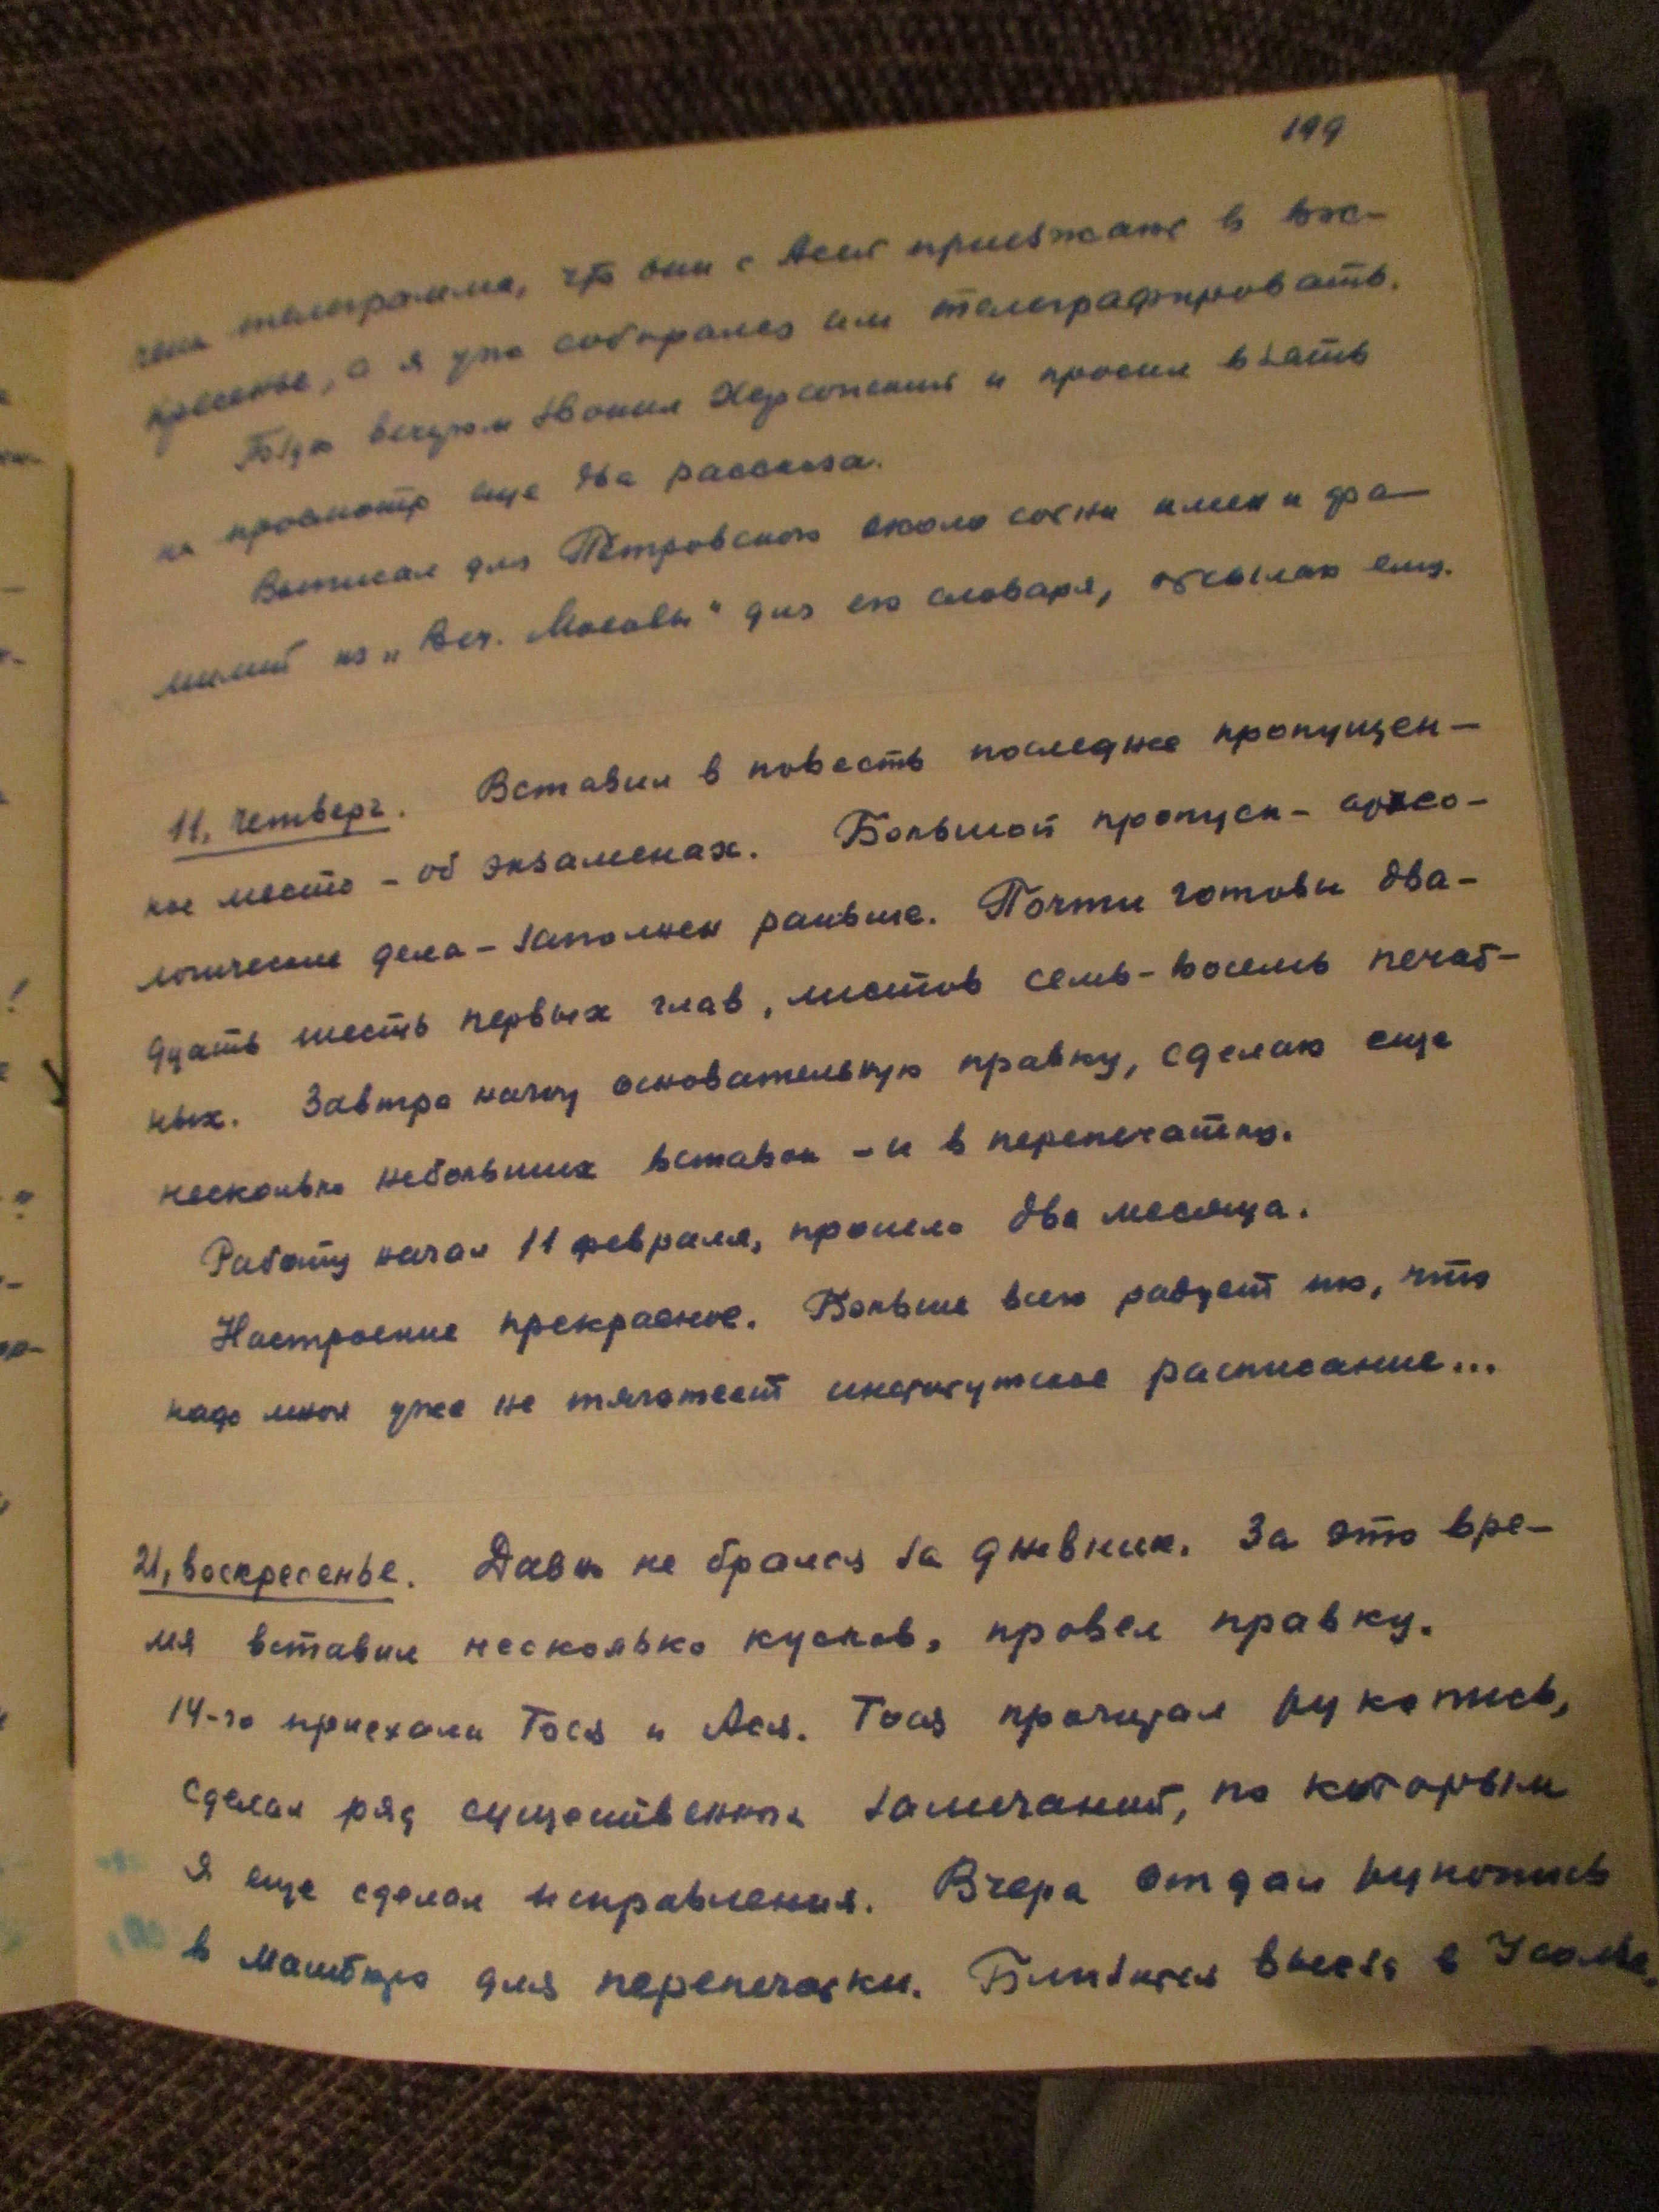 199
чена телеграмма, что они с Асей приезжают в вос-
кресенье, а я уже собирался им телеграфировать.
вечером звонил Херсонский и просил взять
на просмотр еще два рассказа.
Выписал для Петровского около сотни имен и фа-
милий из „Веч. Москвы" для его словаря, отсылаю ему.
11, четверг. Вставил в повесть последнее пропущен-
ное место - об экзаменах. Большой пропуск - архео-
логические дела - заполнен раньше. Почти готовы два-
дцать шесть первых глав, листов семь-восемь печат-
ных. Завтра начну основательную правку, сделаю еще
несколько небольших вставок - и в перепечатку.
Работу начал 11 февраля, прошло два месяца.
Настроение прекрасное. Больше всего радует то, что
надо мной уже не тяготеет институтское расписание...
21, воскресенье. Давно не брался за дневник. За это вре-
мя вставил несколько кусков, провел правку.
14-го приехали Тося и Ася. Тося прочитал рукопись,
сделал ряд существенных замечаний, по которым
я еще сделал исправления. Вчера отдал рукопись
в машбюро для перепечатки. Близится выезд в Усолье.